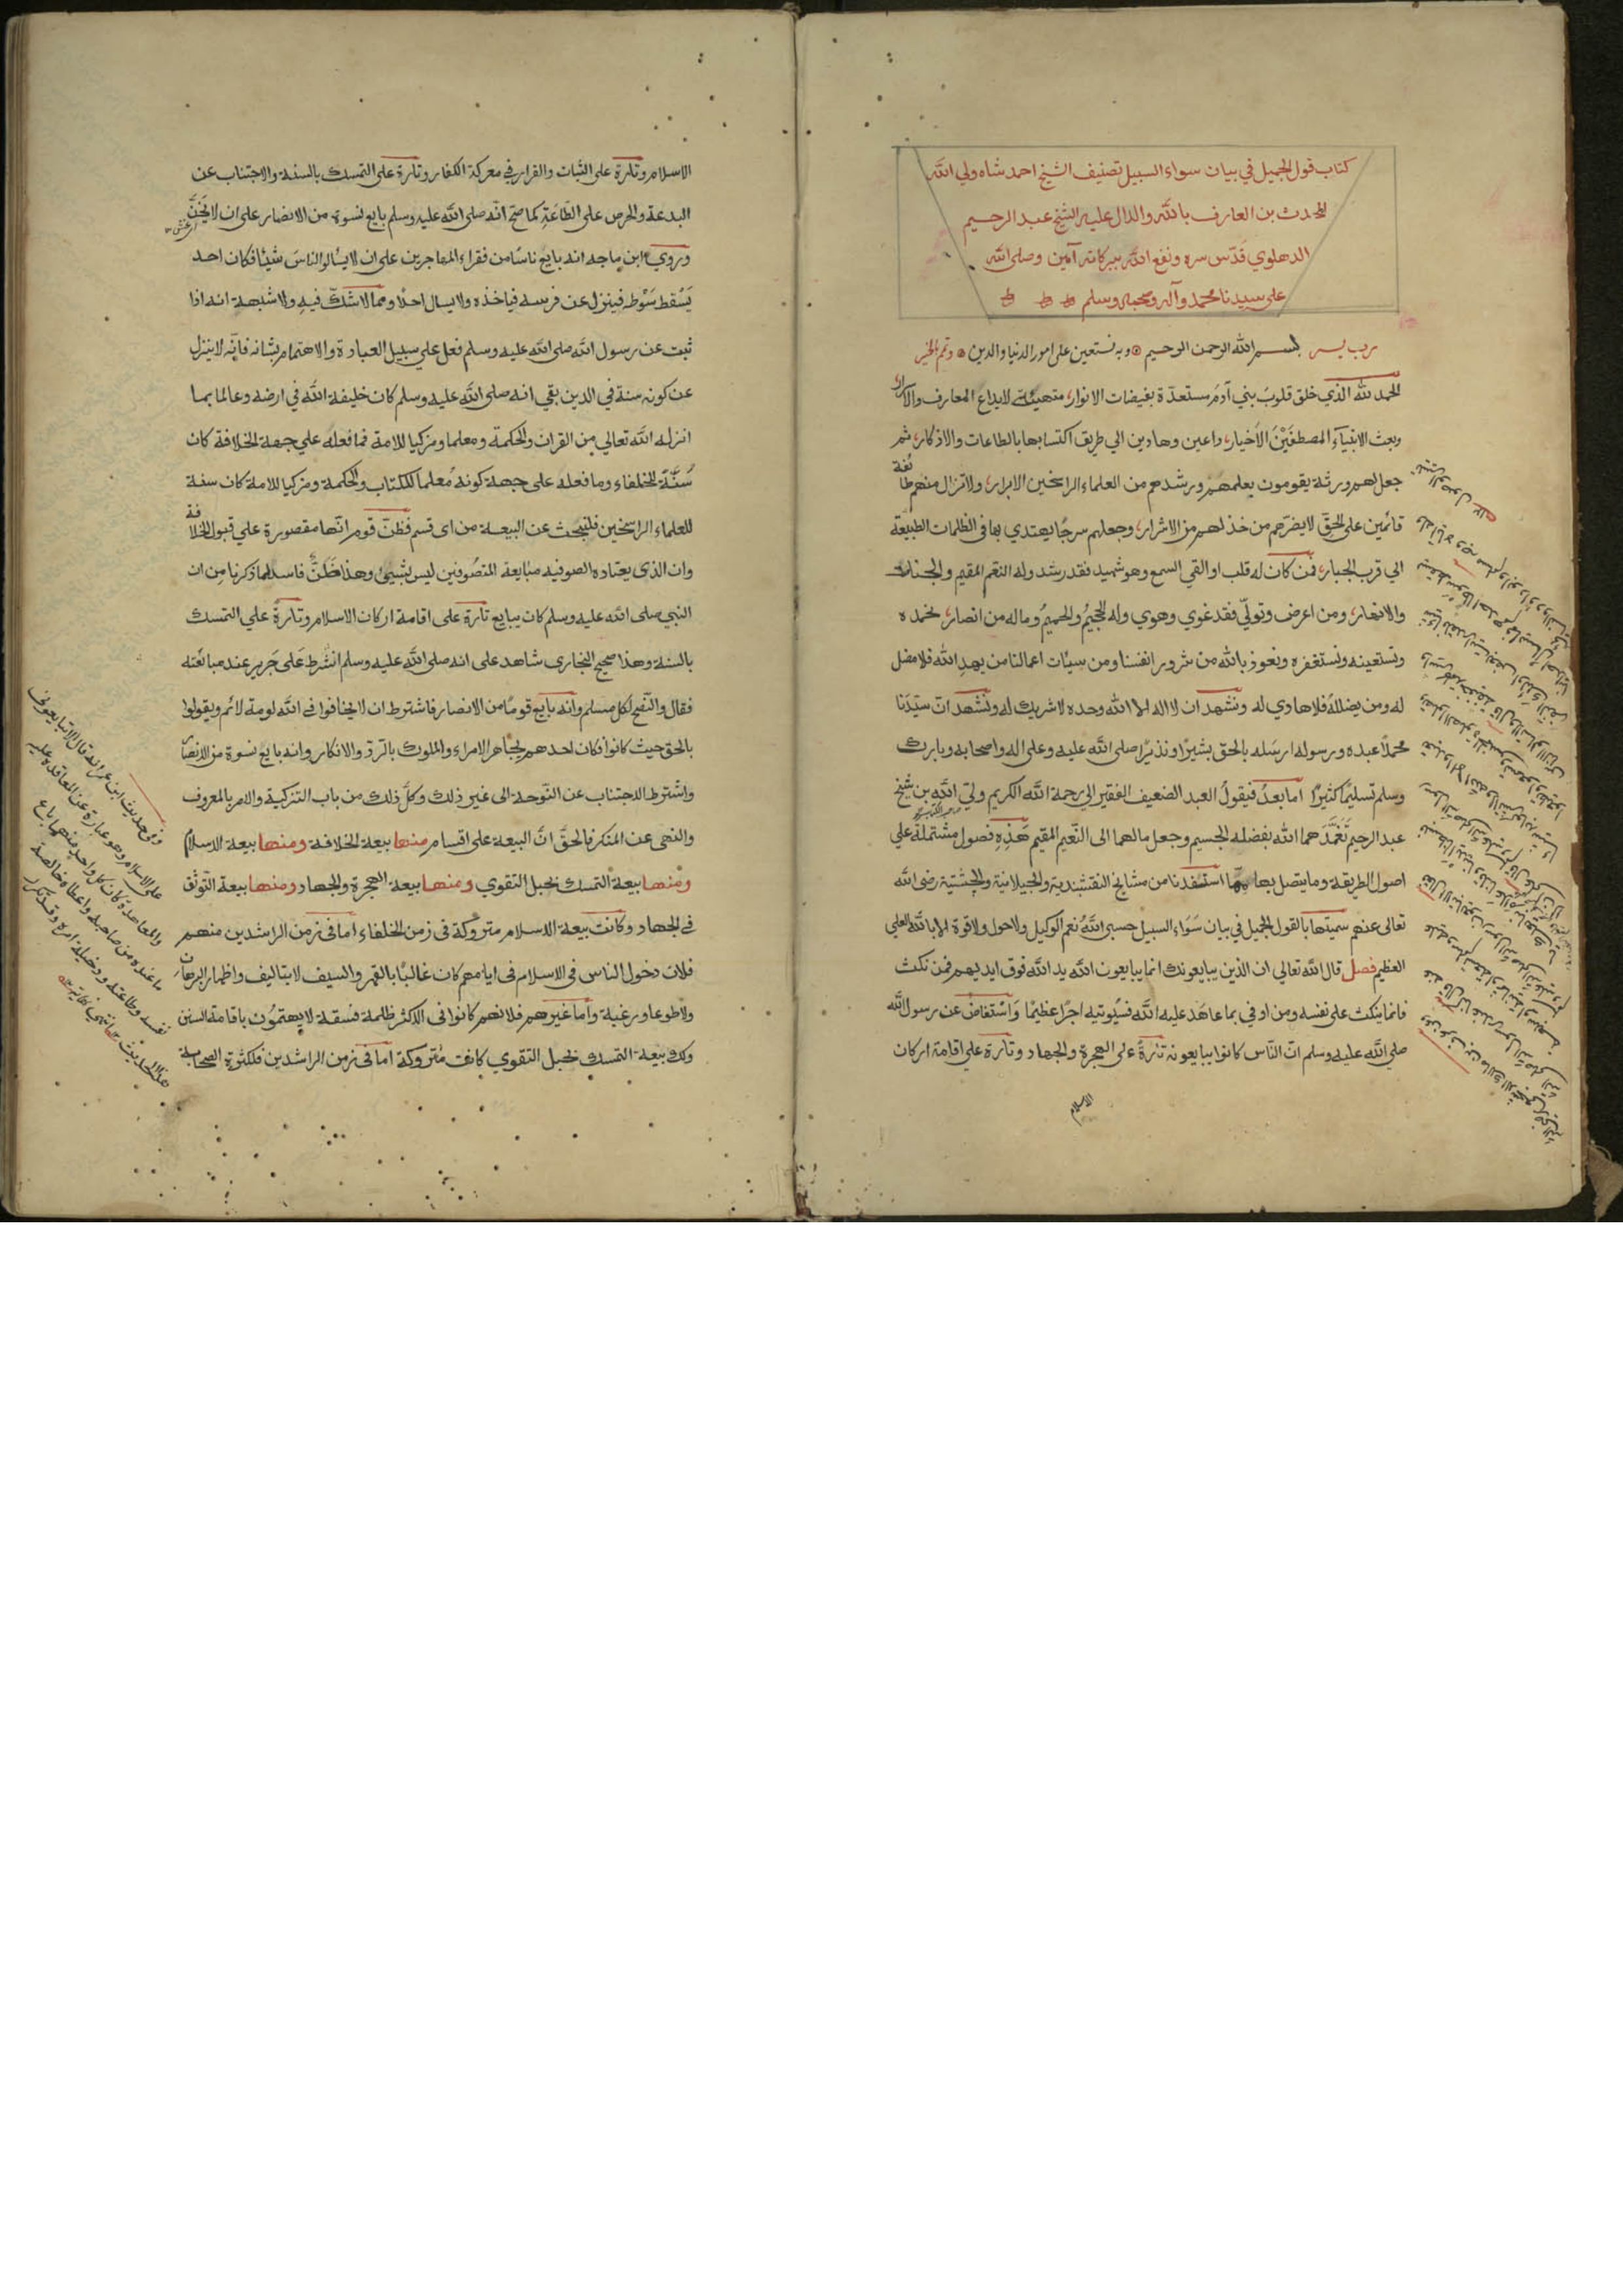 كتاب قول الجميل في بيان سواء السبيل تصنيف الشيخ احمد شاه ولي الله
المحدث بن العارف بالله والدال عليه الشيخ عبد الرحيم
الدهلوي قدّس سره ونفع الله ببركاته آمين وصلى الله
على سيدنا محمد وآله وصحبه وسلم
رب يسر بسم الله الرحمن الرحيم وبه نستعين على امور الدنيا والدين وتمم بالخير
الحمد لله الذي خلق قلوب بني آدم مستعدّة بفيضات الانوار، متهيئة لايداع المعارف والاسرار
وبعث الانبيآء المصطفَيْنَ الأخيار، داعين وهادين الي طريق اكتسابها بالطاعات والاذكار، ثم
جعل لهم ورثة يقومون بعلمهم ورشدهم من العلماء الراسخين الابرار، ولا تزال منهم طائفة
قائمين على الحقّ لا يضرّهم من خذلهم من الاشرار، وجعلهم سرجًا يهتدي بها في الظلمات الطبيعة
الي قرب الجبار، فمن كان له قلب او القي السمع وهو شهيد فقد رشد وله النعم المقيم والجنات
والانهار، ومن اعرض وتولّي فقد غوي وهوي وله الجحيمُ والحميمُ وماله من انصار، نحمده
ونستعينه ونستغفره ونعوذ بالله من شرور انفسنا ومن سيّئات اعمالنا من يهدِ الله فلا مضل
له ومن يضلله فلا هادي له ونشهد ان لا اله الا الله وحده لا شريك له ونشهد انّ سيّدَنا
محمدًا عبده ورسوله ارسله بالحق بشيرًا ونذيرًا صلى الله عليه وعلى اله واصحابه وبارك
وسلم تسليمًا كثيرًا اما بعدُ فيقولُ العبد الضعيف الفقير الي رحمة الله الكريم وليّ الله بن شيخ
عبد الرحيم تَغَمَّدَهما الله بفضله الجسيم وجعل مالهما الى النّعيم المقيم هَذِهِ فصول مشتملة علي
اصول الطريقة وما يتصل بها ممّا استفدنا من مشايخ النقشبندية والجيلانية والجشتية رضى الله
تعالى عنهم سميتها بالقول الجميل في بيان سَوَاء السبيل حسبي اللهُ ونعم الوكيل ولا حول ولا قوة الا بالله العلي
العظيم فصل قال الله تعالي ان الذين يبايعونك انما يبايعون الله يد الله فوق ايديهم فمن نكث
فانما ينكث على نفسه ومن اوفي بما عاهَد عليه الله فسيُوتيه اجرًا عظيمًا وَاسْتفاض عن رسول الله
صلي الله عليه وسلم انّ النّاس كانوا يبايعونه تارةً على الهجرة والجهاد وتارة علي اقامة اركان
الاسلام
الاسلام وتارة على الثّبات والقرار في معركة الكفار وتارة على التمسك بالسنة والاجتناب عن
البدعة والحرص على الطّاعَةِ كما صحّ انّه صلى الله عليه وسلم بايع نسوة من الانصار على ان لا يَنُحْنَ
وروي ابن ماجه انه بايع ناسًا من فقراء المهاجرين على ان لا يسألوا الناسَ شيئًا فكان احد
يَسْقط سَوْطه فينزل عن فرسه فياخذه ولا يسال احدًا ومما لا شكّ فيهِ ولا شبهة انه اذا
ثبت عن رسول الله صلى الله عليه وسلم فعل علي سبيل العبادة والاهتمام بشانه فانّه لا ينزل
عن كونه سنة في الدين بقي انه صلى الله عليه وسلم كان خليفة الله في ارضه وعالما بما
انزله الله تعالي من القران والحكمة ومعلما ومزكيا للامة فما فعله علي جهة الخلافة كان
سُنَّة للخلفاء وما فعله على جهة كونه مُعلما للكتاب والحكمة ومزكيا للامة كان سنة
للعلماء الراسخين فلنبحث عن البيعة من اى قسم فظنّ قوم انّها مقصورة علي قبول الخلافة
وان الذى يعتاده الصوفيه مبايعة المتصُوفين ليس بشيئ وهذا ظَنٌّ فاسد لما ذكرنا من ان
النبي صلى الله عليه وسلم كان يبايع تارة على اقامة اركان الاسلام وتارة علي التمسك
بالسنة وهذا صحيح البخارى شاهد على انه صلى الله عليه وسلم اشْرط عَلى جَرير عند مبايعته
فقال والنّصح لكل مسلم وانه بايع قومًا من الانصار فاشترط ان لا يخافوا في الله لومة لائم ويقولوا
بالحق حيث كانوا فكان احدهم يجاهر الامراء والملوك بالرّدّ والانكار وانه بايع نسوة من الانصار
واشترط الاجتناب عن النّوحة الى غير ذلك وكلّ ذلك من باب التزكية والامر بالمعروف
والنهى عن المنكر فالحقّ انّ البيعة على اقسام منها بيعة الخلافة ومنها بيعة الاسلام
ومنها بيعة التمسك بحبل التقوي ومنها بيعة الهجرة والجهاد ومنها بيعة التّوثق
في الجهاد وكانت بيعة الاسلام متروكة فى زمن الخلفاء اما فى زمن الراشدين منهم
فلان دخول الناس فى الاسلام فى ايامهم كان غالبًا بالقهر والسيف لا بتاليف واظهار البرهان
ولا طوعا ورغبة واما غيرهم فلانهم كانوا فى الاكثر ظلمة فسقة لا يهتمُون باقامة السنن
وكذ بيعة التمسك بحبل التقوي كانت متروكة اما فى زمن الراشدين فلكثرة الصحابة
وفى حديث ابن عمر انه قال الا تبايعون
على الاسلام وهو عبارة عن المعاقدة عليه
والمعاهدة كان كل واحد منهما باع
ما عنده من صاحبه واعطاه خالصة
نفسه وطاعته ودخيلة امره وقد تكرر
هذا الحديث